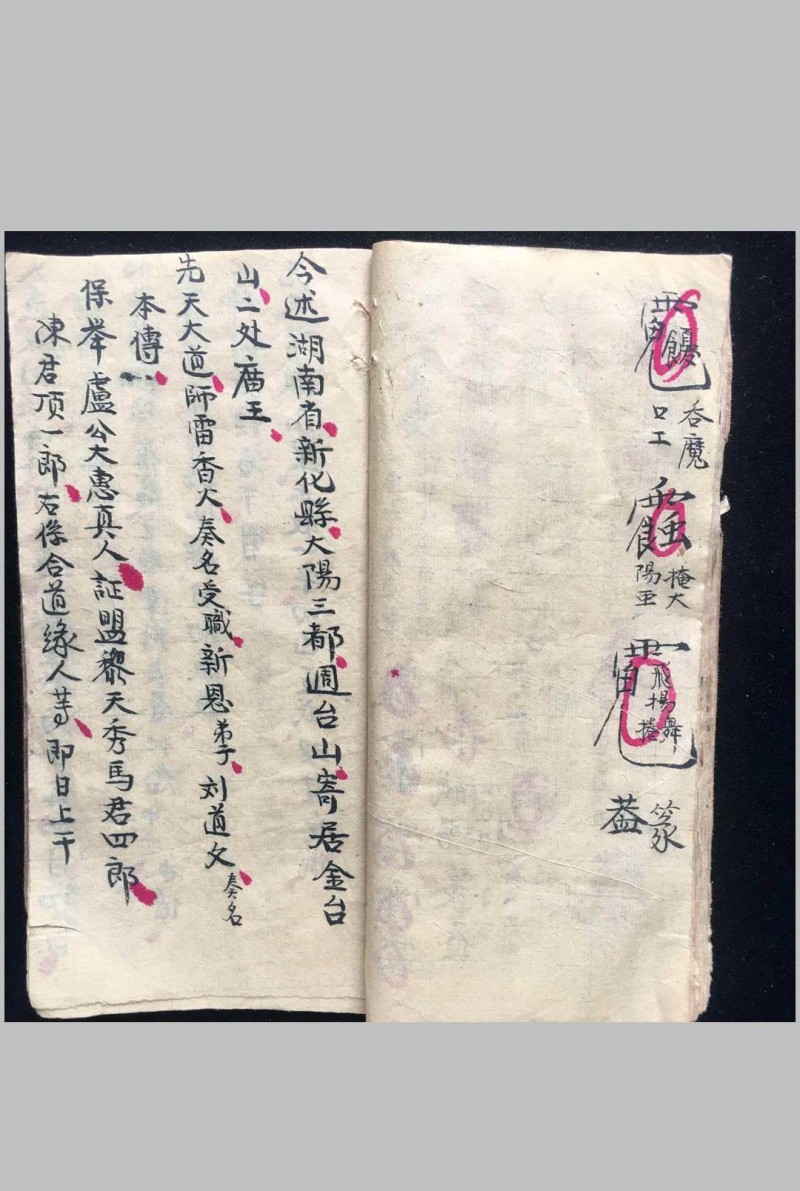 吞魔
口工
掩大
陽亜
飛揚舞捲
蓋
今述湖南省新化縣大陽三都週台山寄居金台
山二处廟王
先天大道師雷香火奏名受職新恩弟子刘道文奏名
本傳
保举盧公大惠真人証盟黎天秀馬君四郎
陳君项一郎右係合道缘人等即日上干